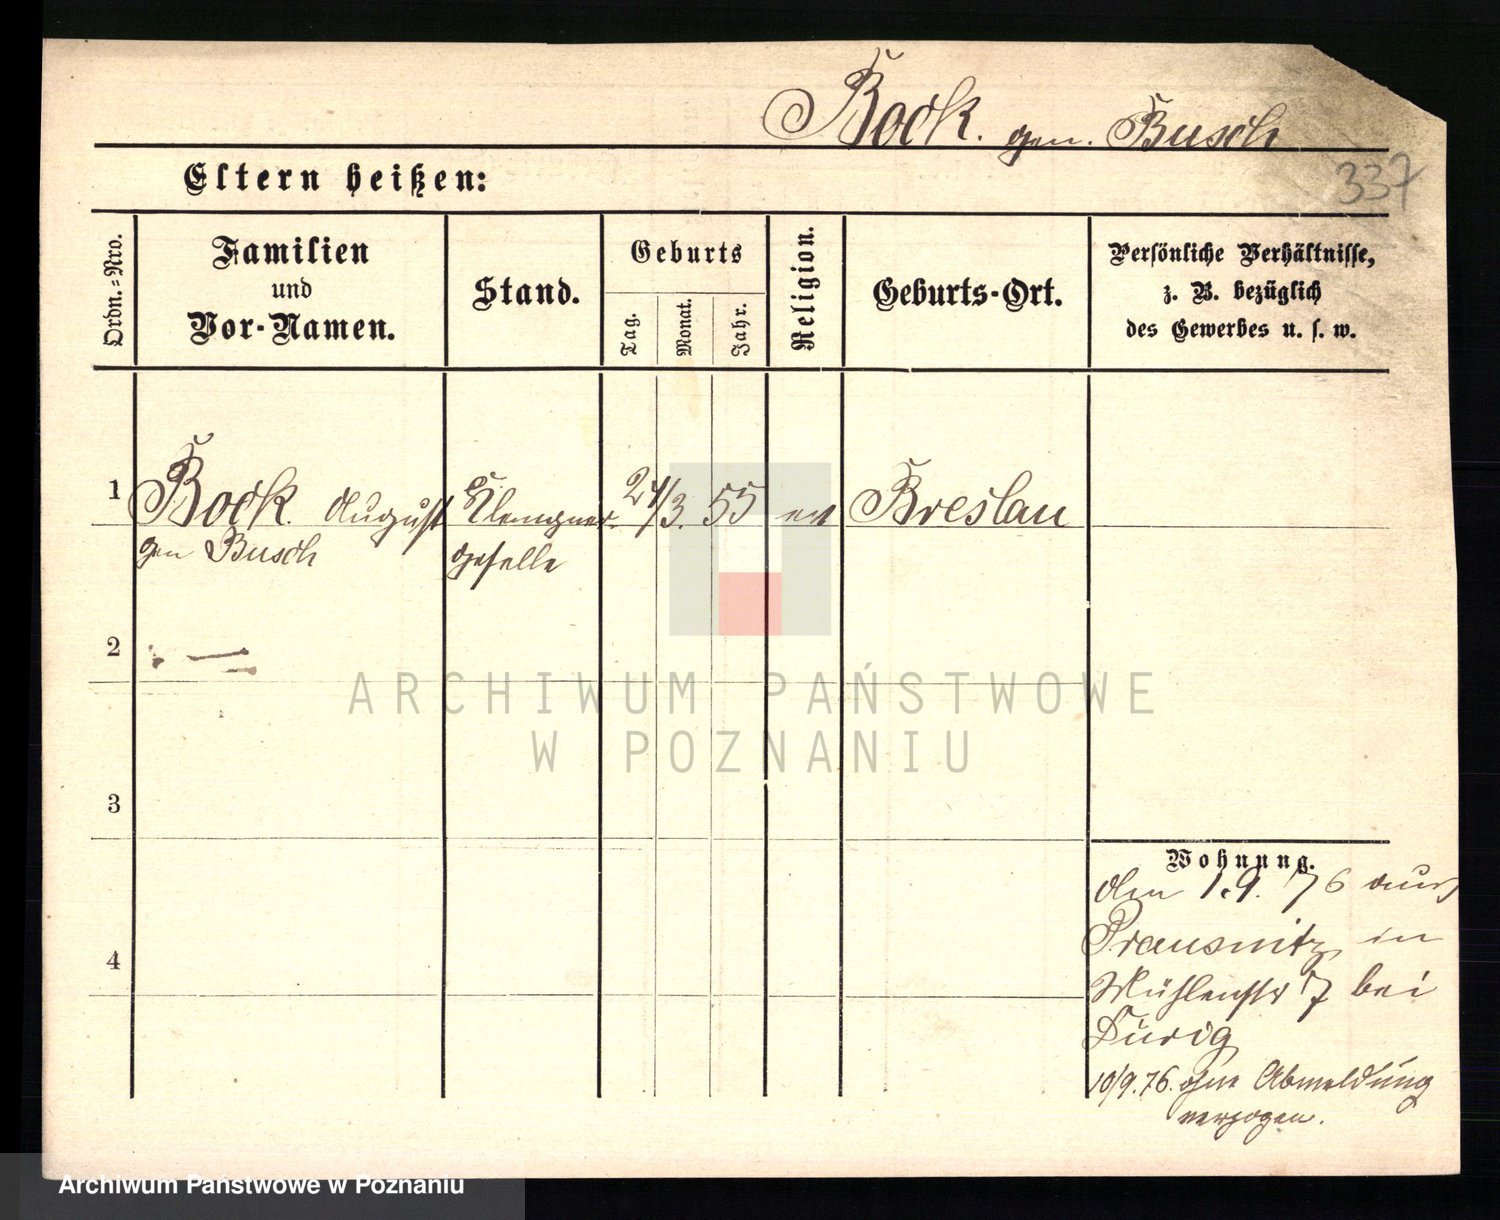 Bock. gen. Busch
337
Eltern heißen:
Ordn.-Nro.
Familien
und
Vor-Namen.
Stand.
Geburts
Tag.
Monat.
Jahr.
Religion.
Geburts-Ort.
Persönliche Verhältnisse,
z. B. bezüglich
des Gewerbes u. s. w.
1 Bock. August Klempner- 24/3. 55 ev Breslau
gen Busch geselle
2
3
4
Wohnung.
den 1.9. 76 aus
Prausnitz in
Mühlenstr 7 bei
Durig
10/9.76. ohne Abmeldung
verzogen.
ARCHIWUM PAŃSTWOWE
W POZNANIU
Archiwum Państwowe w Poznaniu